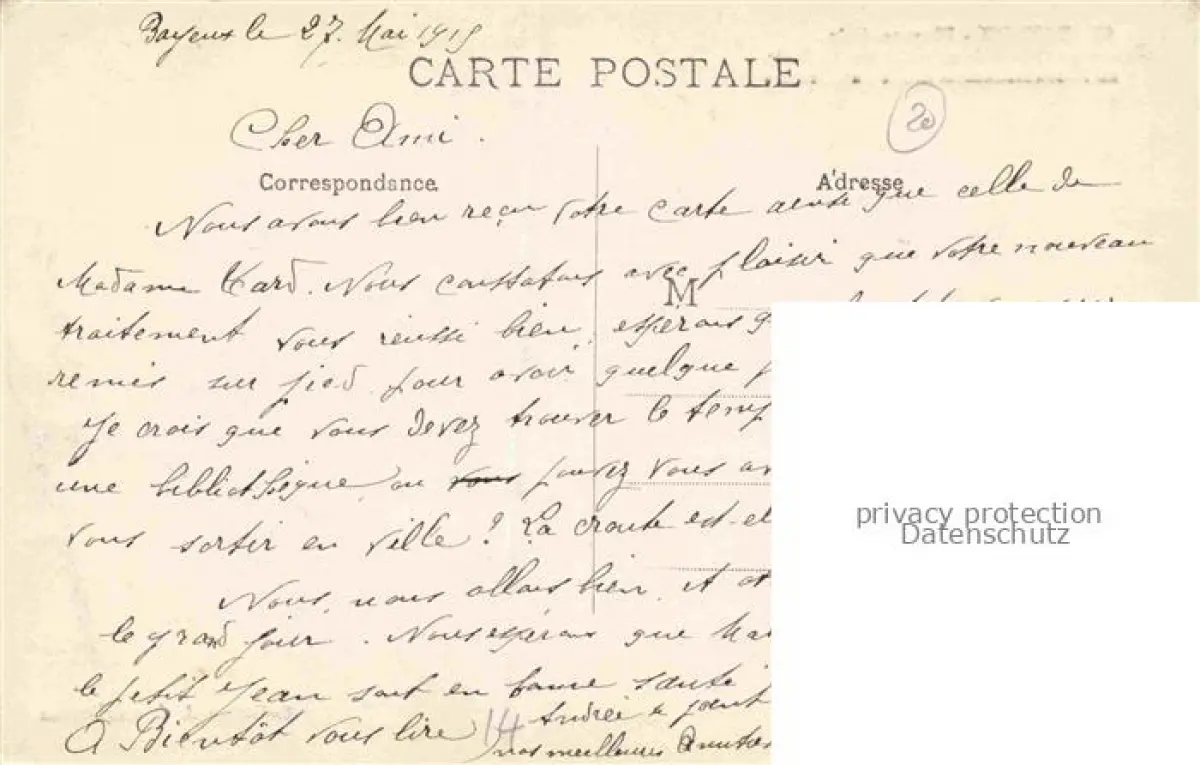 Bayeux le 27. Mai 1915
CARTE POSTALE
20
Cher Ami.
Correspondance
Adresse
Nous avons bien reçu votre carte ainsi que celle de
Madame Kard. Nous constatons avec plaisir que votre nouveau
M
traitement vous réussi bien, esperons
remis sur pied pour avoir quelque
Je crois que vous devez trouver le temp
une bibliothèque, ou vous pouvez vous
vous sortir en ville ? La croute est-el
Nous, nous allons bien. et
le grand jour. Nous esperons que Ma
le petit Jean sont en bonne santé
A Bientôt vous lire 14 Andrée se joint
nos meilleures Amitiés
privacy protection
Datenschutz